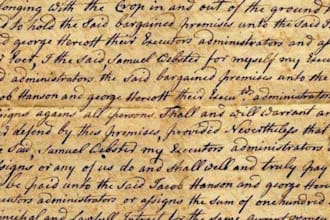 longing with the Crop in and out of the ground
to hold the Said bargained premises unto the Said
and george Hercott their Executors administrators and
for Ever, I the Said Samuel Webster for myself my Exec
administrators the Said bargained premises unto the
ob Hanson and george Hercott their Execu administrators
signs against all persons Shall and will Warrant a
nd defend by thess presents, provided Nevertheless tha
Said, Samuel Webster my Executors administrators
ssigns or any of us do and Shall well and truly pay
be paid unto the Said Jacob Hanson and george Her
ecutors administrators or assigns the Sum of one hundred
incipal and Lawfull Interest for the same